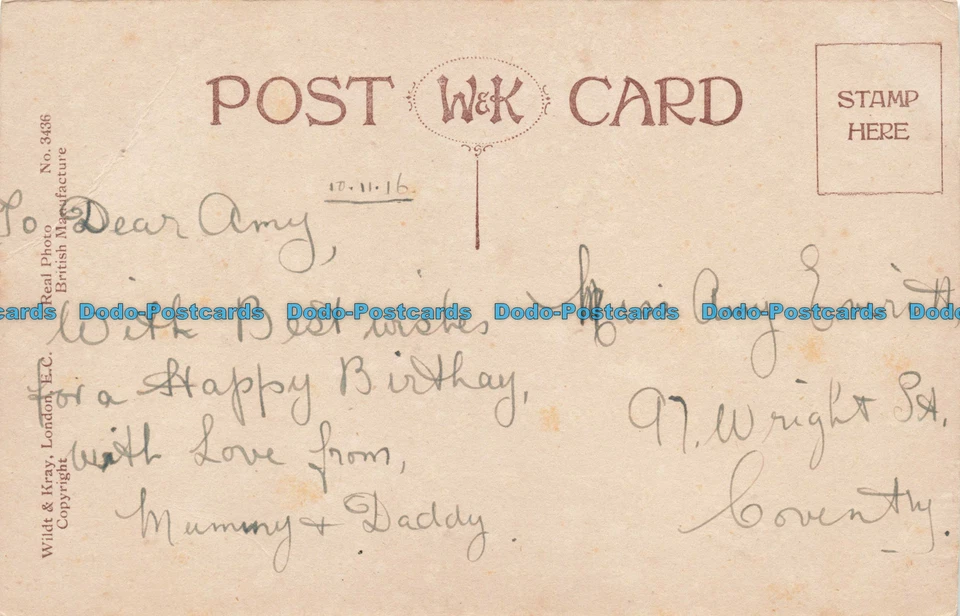 POST W&K CARD
STAMP
HERE
10.11.16
To Dear Amy,
With Best wishes
For a Happy Birthay,
with Love from,
Mummy + Daddy.
Miss Amy
97. Wright St.
Coventry.
Wildt & Kray, London, E.C. Real Photo No. 3436
Copyright British Manufacture
Dodo-Postcards Dodo-Postcards Dodo-Postcards Dodo-Postcards Dodo-Postcards